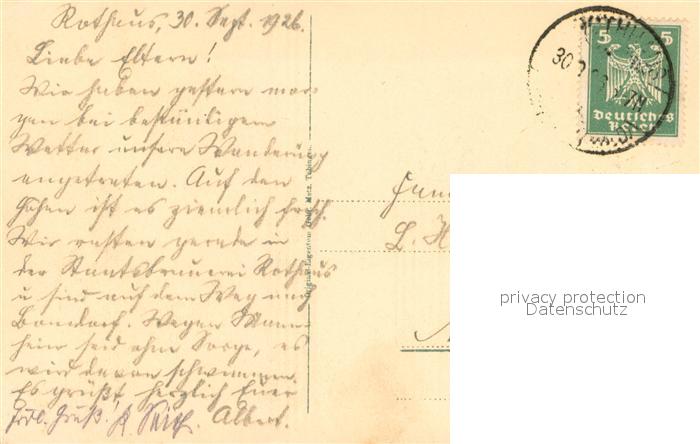 Rothaus, 30. Sept. 1926.
Liebe Eltern!
Wir haben gestern mor-
gen bei beständigem
Wetter unsere Wanderung
angetreten. Auf den
Höhen ist es ziemlich frisch.
Wir rasten gerade in
der Staatsbrauerei Rothaus
u sind auf dem Weg nach
Bondorf. Wegen Mann-
heim seid ohne Sorge, es
wird davon schwimmen.
Es grüßt herzlich Euer
Albert.
Frdl. Gruß.
5 5
Deutsches
Reich
30
Fam
L. H
privacy protection
Datenschutz